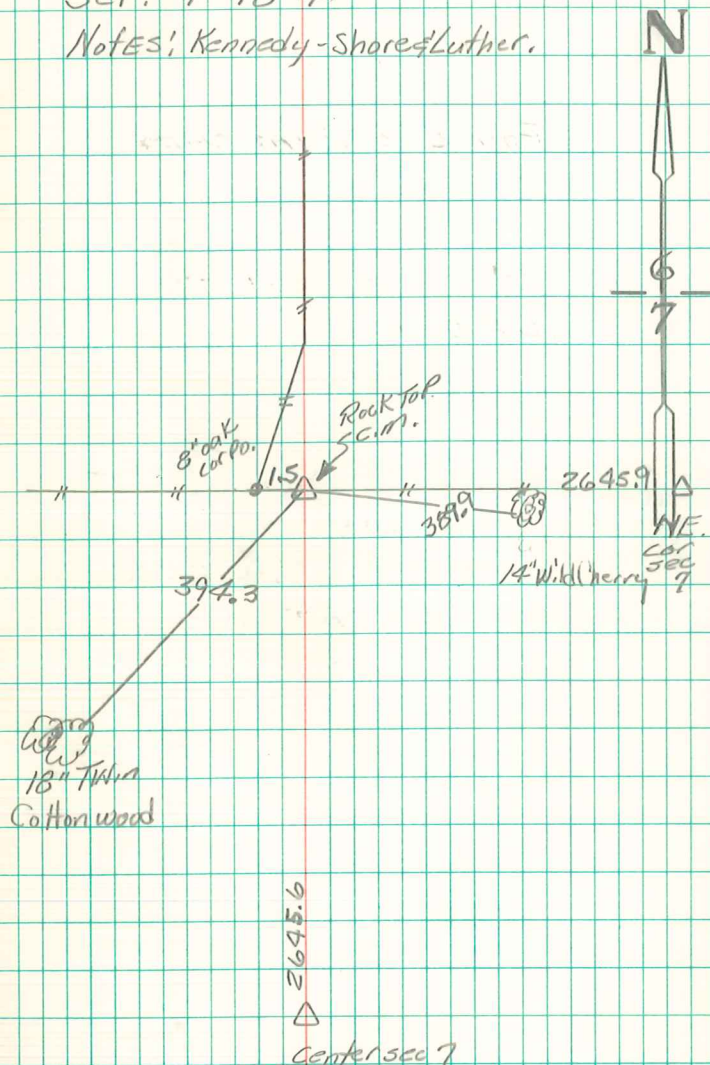 Notes: Kennedy-Shore & Luther.
N
6
7
Rock Top
c.m.
8" oak
corpo.
1.5
2645.9
389.9
NE.
cor
sec
7
14" Wild Cherry
394.3
18" Twin
Cottonwood
2645.6
Center sec 7